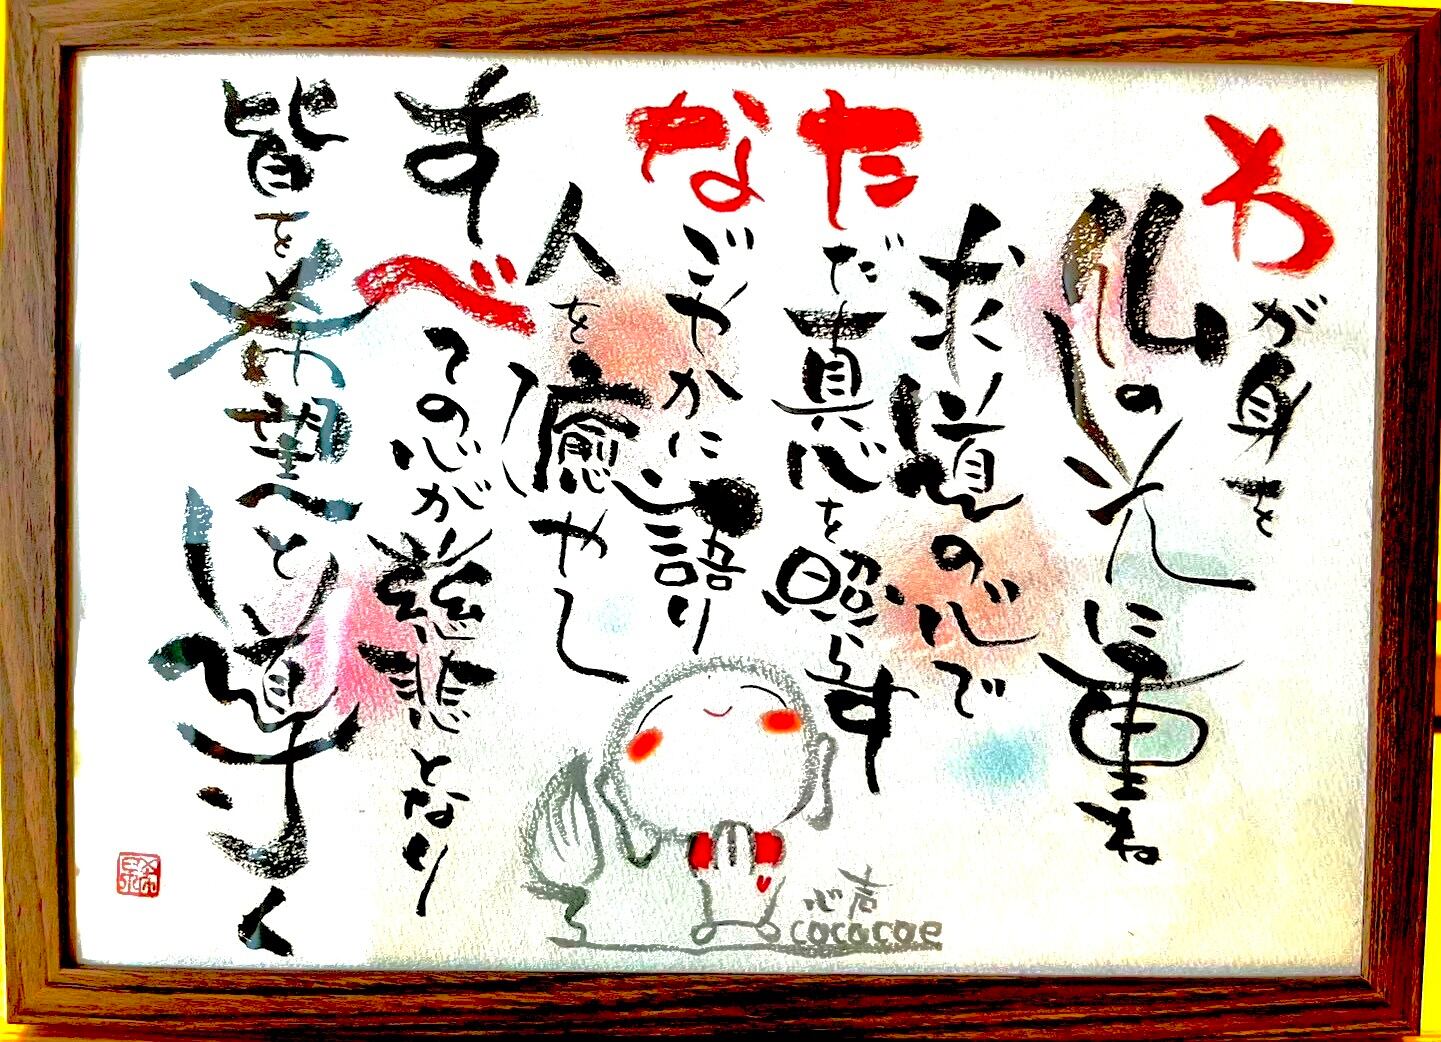 わが身を
仏の光に重ね
求道の心で
ただ真心を照らす
なごやかに語り
人を癒やし
すべての心が慈悲となり
皆を希望へと導く
心声
cococoe